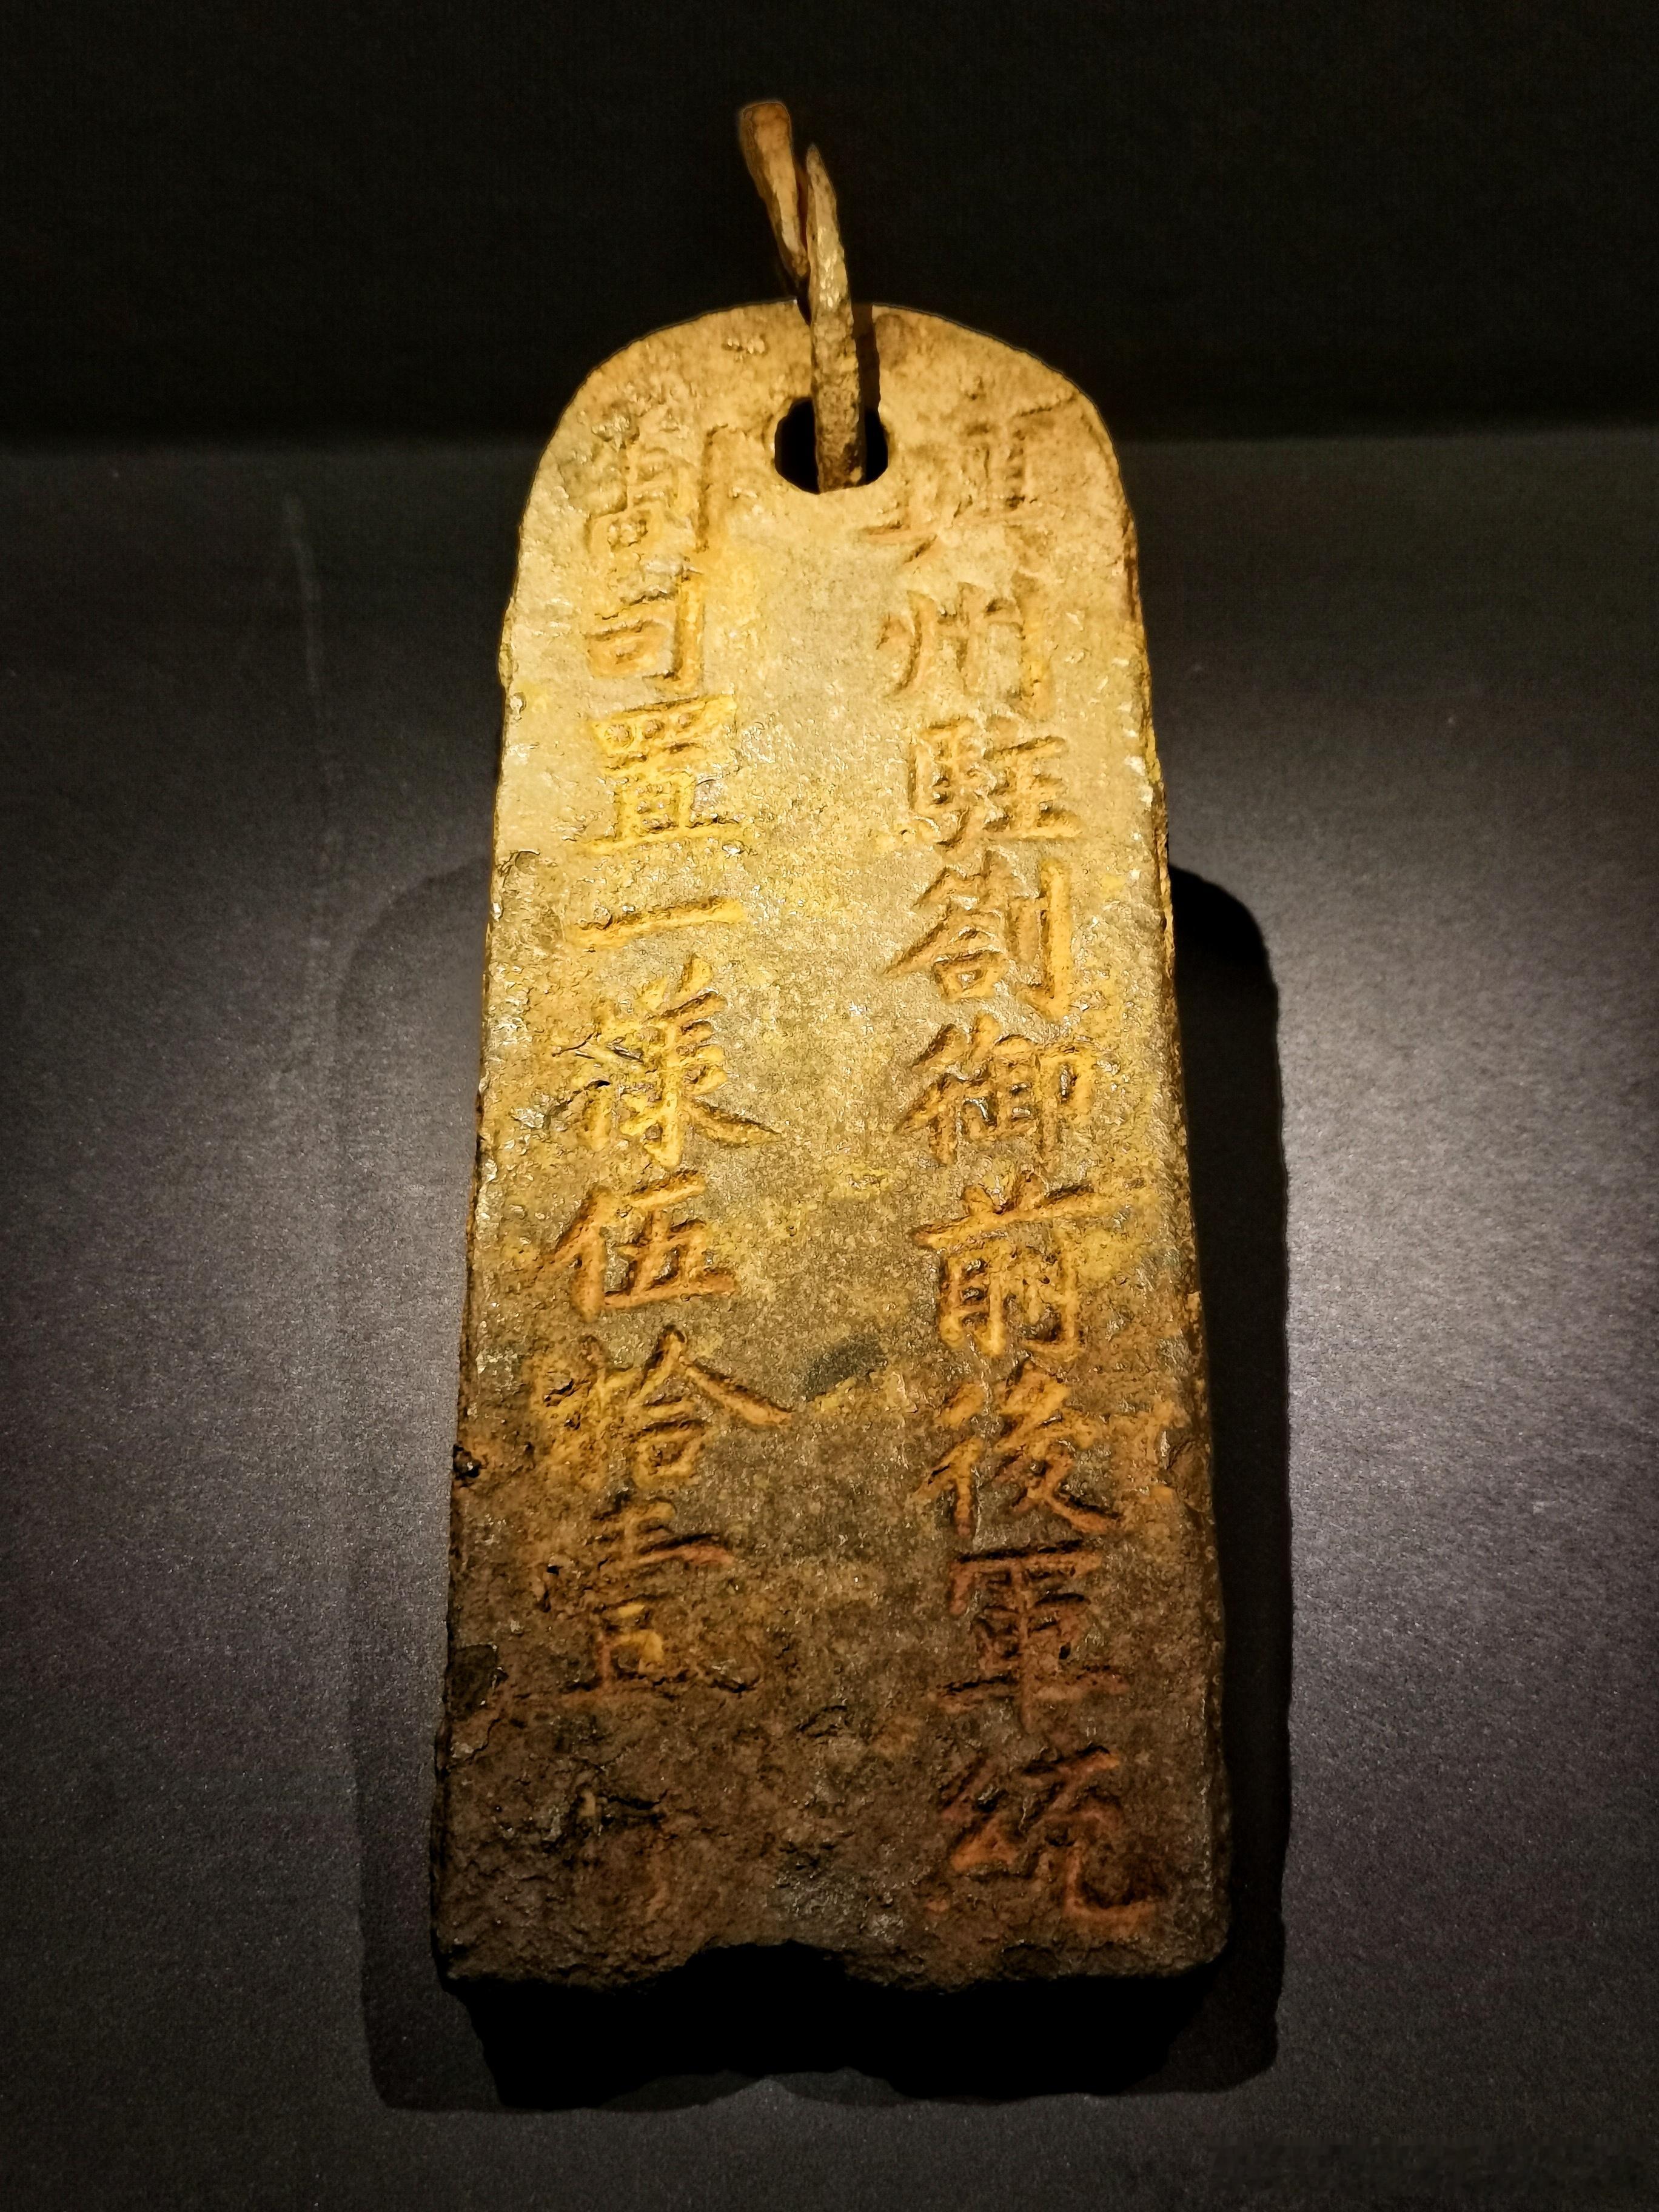 州駐劄御前後軍統
制司置一樣伍拾壹斤